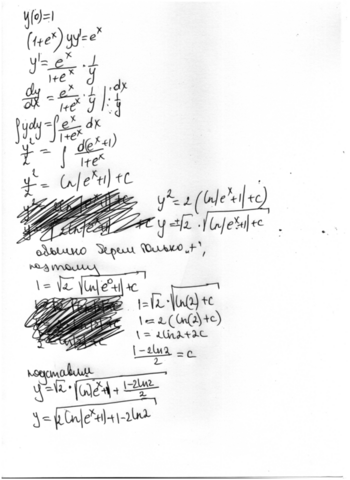 y(0)=1
(1+e^x) yy'=e^x
y'= e^x/(1+e^x) · 1/y
dy/dx = e^x/(1+e^x) · 1/y | ·dx :1/y
∫ydy=∫ e^x/(1+e^x) dx
y²/2 = ∫ d(e^x+1)/(1+e^x)
y²/2 = ln|e^x+1|+c
y²=2(ln|e^x+1|+c)
y=±√2 · √(ln|e^x+1|+c)
обычно берем только „+",
поэтому
1=√2 √(ln|e^0+1|+c)
1=√2·√(ln(2)+c)
1=2(ln(2)+c)
1=2ln2+2c
(1-2ln2)/2 =c
подставим
y=√2 · √(ln|e^x+1|+(1-2ln2)/2)
y=√(2ln|e^x+1|+1-2ln2)